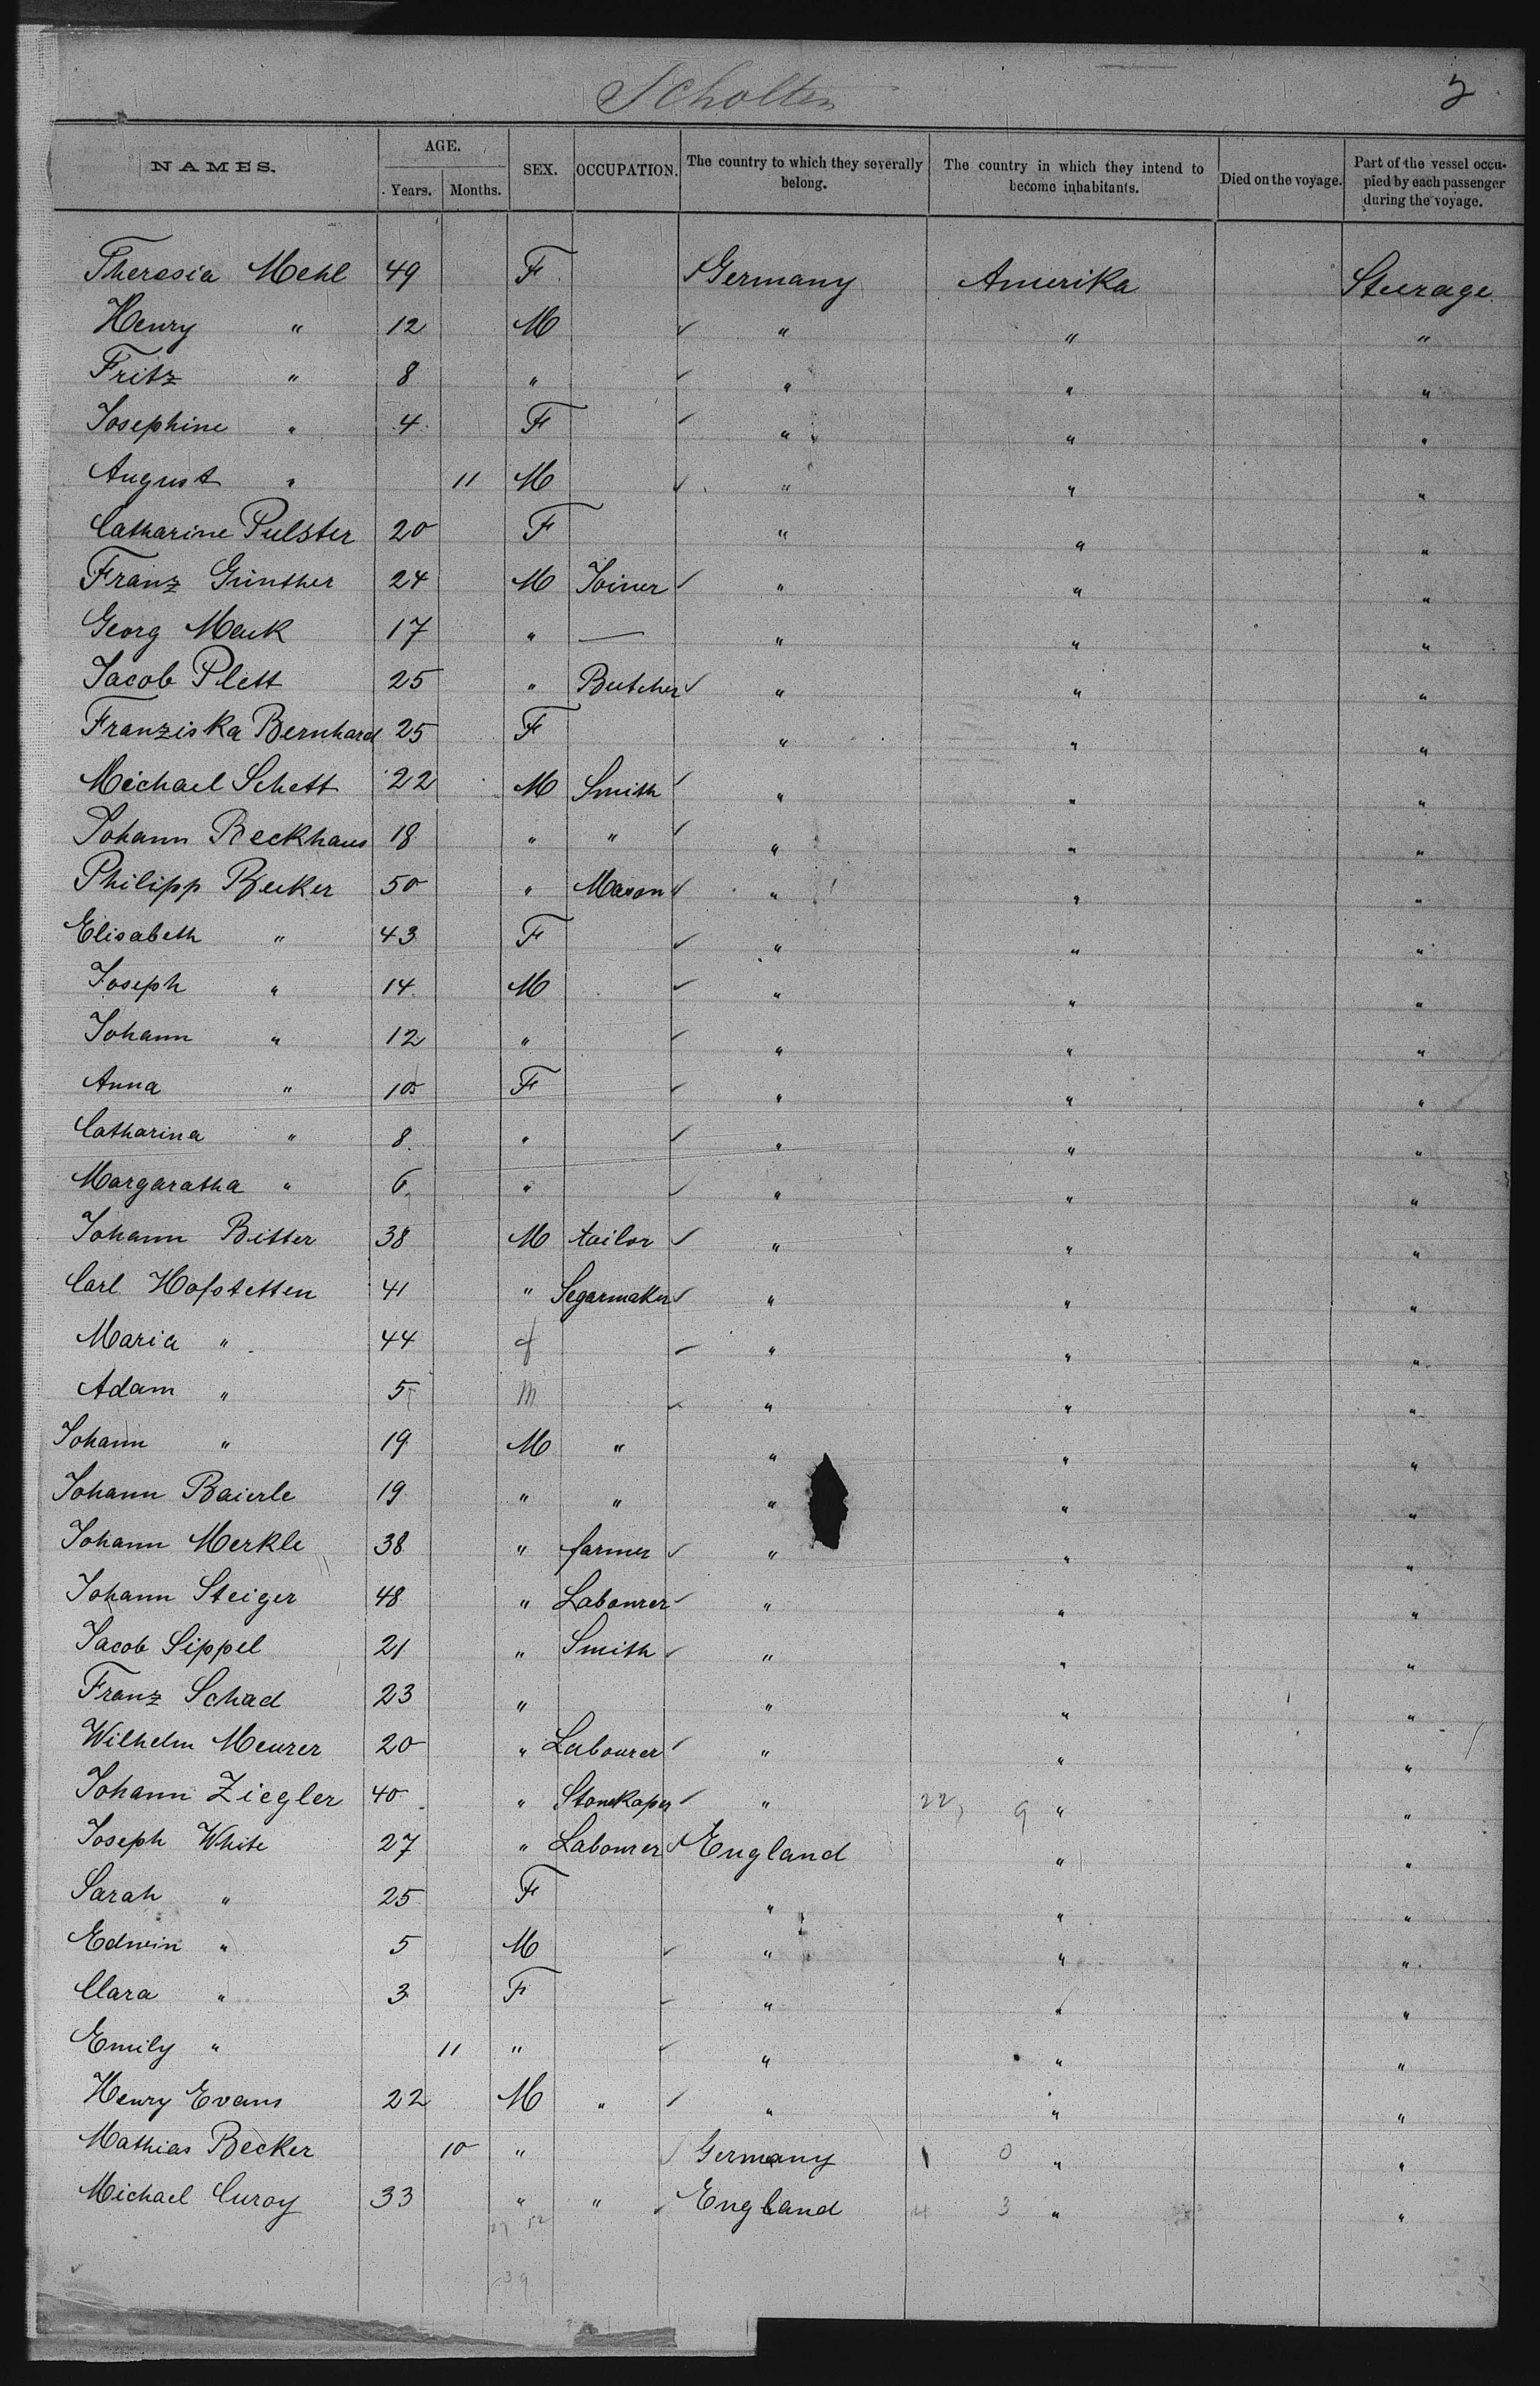 Scholten
NAMES. AGE. Years. Months. SEX. OCCUPATION. The country to which they severally belong. The country in which they intend to become inhabitants. Died on the voyage. Part of the vessel occupied by each passenger during the voyage.
Theresia Mehl 49 F Germany Amerika Steerage
Henry " 12 M " " "
Fritz " 8 " " " "
Josephine " 4 F " " "
August " 11 M " " "
Catharine Pulster 20 F " " "
Franz Günther 24 M Joiner " " "
Georg 17 " — " " "
Jacob Plett 25 " Butcher " " "
Franziska Bernhard 25 F " " "
Michael Schett 22 M Smith " " "
Johann Beckhaus 18 " " " " "
Philipp Becker 50 " Mason " " "
Elisabeth " 43 F " " "
Joseph " 14 M " " "
Johann " 12 " " " "
Anna " 10 F " " "
Catharina " 8 " " " "
Margaratha " 6 " " " "
Johann Bitter 38 M tailor " " "
Carl Hofstetten 41 " Segarmaker " " "
Maria " 44 f " " "
Adam " 5 m " " "
Johann " 19 M " " " "
Johann Baierle 19 " " " " "
Johann Merkle 38 " farmer " " "
Johann Steiger 48 " Labourer " " "
Jacob Sippel 21 " Smith " " "
Franz Schad 23 " " " "
Wilhelm Meurer 20 " Labourer " " "
Johann Ziegler 40 " " 22, 9 " "
Joseph White 27 " Labourer England " "
Sarah " 25 F " " "
Edwin " 5 M " " "
Clara " 3 F " " "
Emily " 11 " " " "
Henry Evans 22 M " " " "
Mathias Becker 10 " Germany 1 0 " "
Michael Curoy 33 " " England 4 3 " "
39